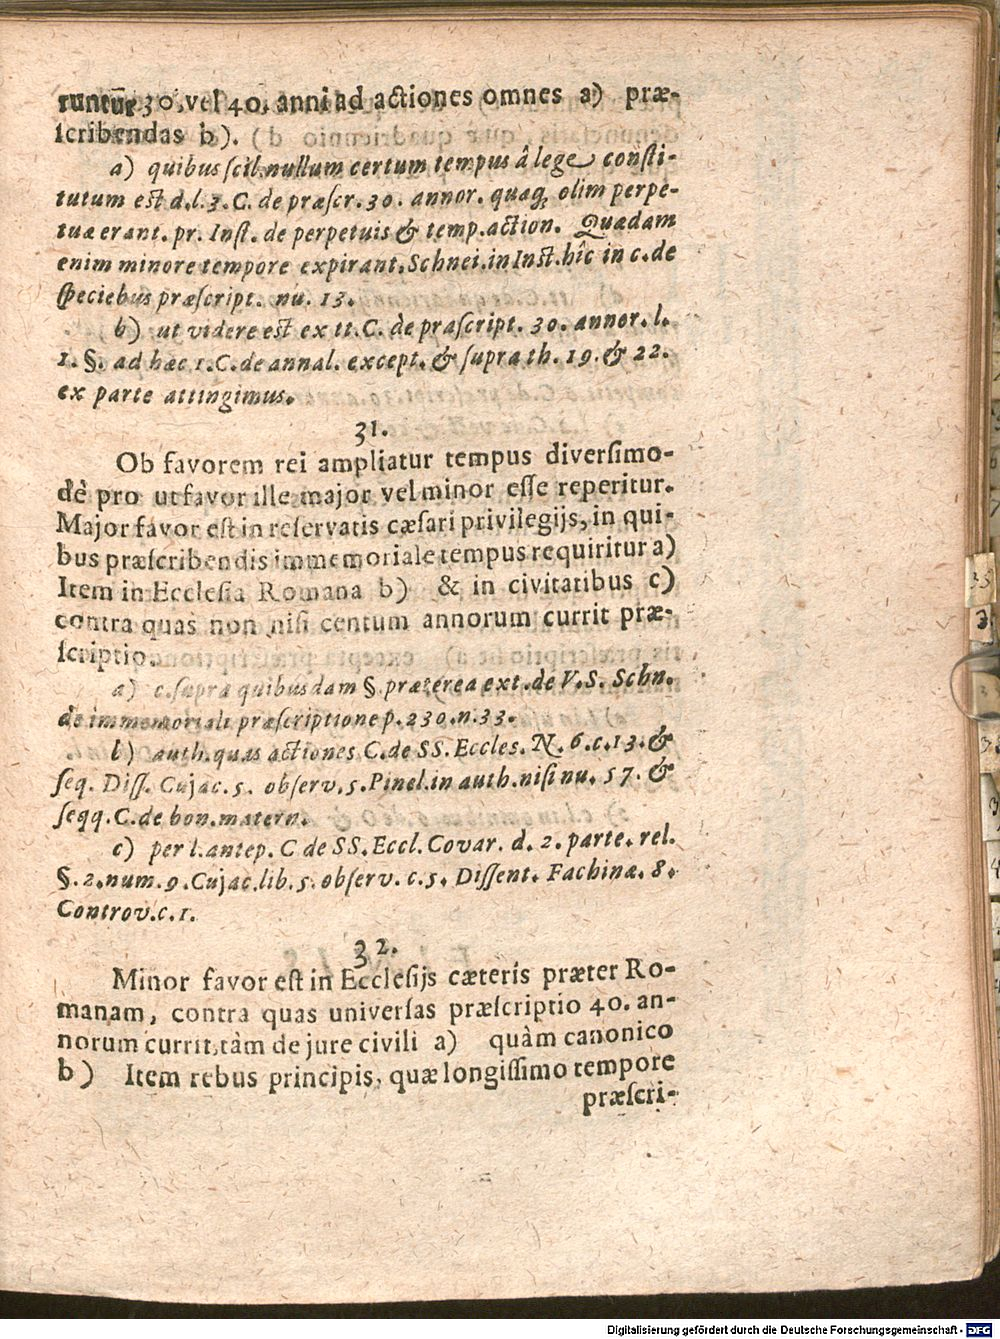 runtur 30. vel 40. anni ad actiones omnes a) præ-
ſcribendas b).
a) quibus ſcil. nullum certum tempus â lege conſti-
tutum eſt d. l. 3. C. de præſcr. 30. annor. quaq; olim perpe-
tuæ erant. pr. Inſt. de perpetuis & temp. action. Quædam
enim minore tempore expirant. Schnei. in Inſt. hîc in c. de
ſpeciebus præſcript. nu. 13.
b) ut videre eſt ex tt. C. de præſcript. 30. annor. l.
1. §. ad hæc 1. C. de annal. except. & ſupra th. 19. & 22.
ex parte attingimus.
31.
Ob favorem rei ampliatur tempus diverſimo-
dè pro ut favor ille major vel minor eſſe reperitur.
Major favor eſt in reſervatis cæſari privilegijs, in qui-
bus præſcribendis immemoriale tempus requiritur a)
Item in Eccleſia Romana b) & in civitatibus c)
contra quas non niſi centum annorum currit præ-
ſcriptio.
a) c. ſupra quibusdam §. præterea ext. de V. S. Schn.
de immemoriali præſcriptione p. 230. n. 33.
b) auth. quas actiones C. de SS. Eccles. N. 6. c. 13. &
ſeq. Diſſ. Cujac. 5. obſerv. 5. Pinel. in auth. niſi nu. 57. &
ſeqq. C. de bon. matern.
c) per l. antep. C de SS. Eccl. Covar. d. 2. parte. rel.
§. 2. num. 9. Cujac. lib. 5. obſerv. c. 5. Diſſent. Fachinæ. 8.
Controv. c. 1.
32.
Minor favor eſt in Eccleſijs cæteris præter Ro-
manam, contra quas univerſas præſcriptio 40. an-
norum currit, tàm de jure civili a) quàm canonico
b) Item rebus principis, quæ longiſſimo tempore
præſcri-
Digitalisierung gefördert durch die Deutsche Forschungsgemeinschaft - DFG